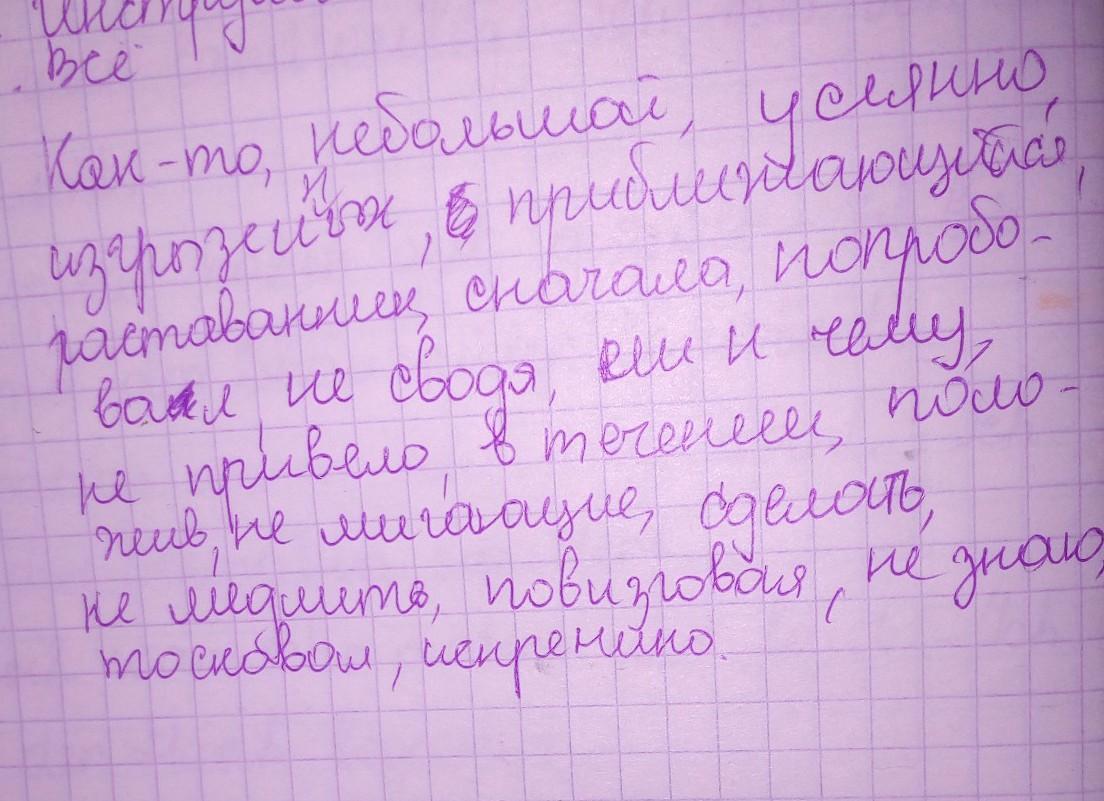 Все
Как-то, небольшой, услянно,
изгрызеных, приближающийся,
раставании, сначала, попробо-
вал, не сводя, ни к чему,
не привело, в течении, поло-
жив, не мигающие, сделать,
не медлить, повизговая, не знаю,
тосковал, искренино.